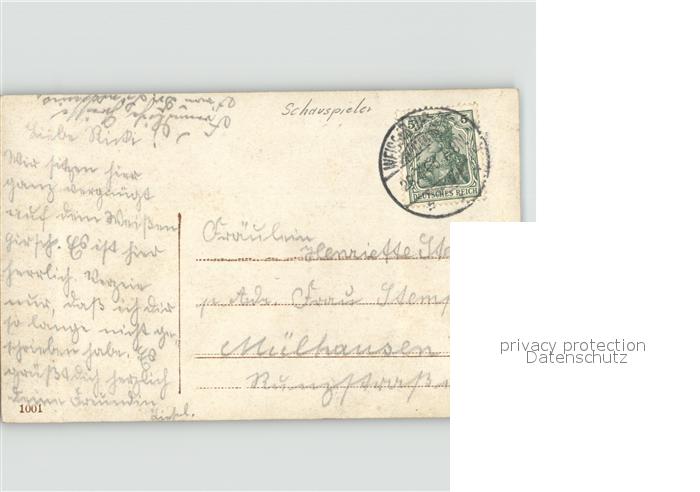 Schauspieler
Liebe Rickt!
Wir sitzen hier
ganz vergnügt
auf dem Weißen
Hirsch. Es ist hier
herrlich. Verzeie
nur, daß ich dir
so lange nicht ge-
schrieben habe. Es
grüßt dich herzlich
Deine Freundin
Liesel.
1001
5 5
DEUTSCHES REICH
WEISS
Fräulein
Henriette Ste
p. Adr. Frau Stemp
Mülhausen
Rungstraß
privacy protection
Datenschutz